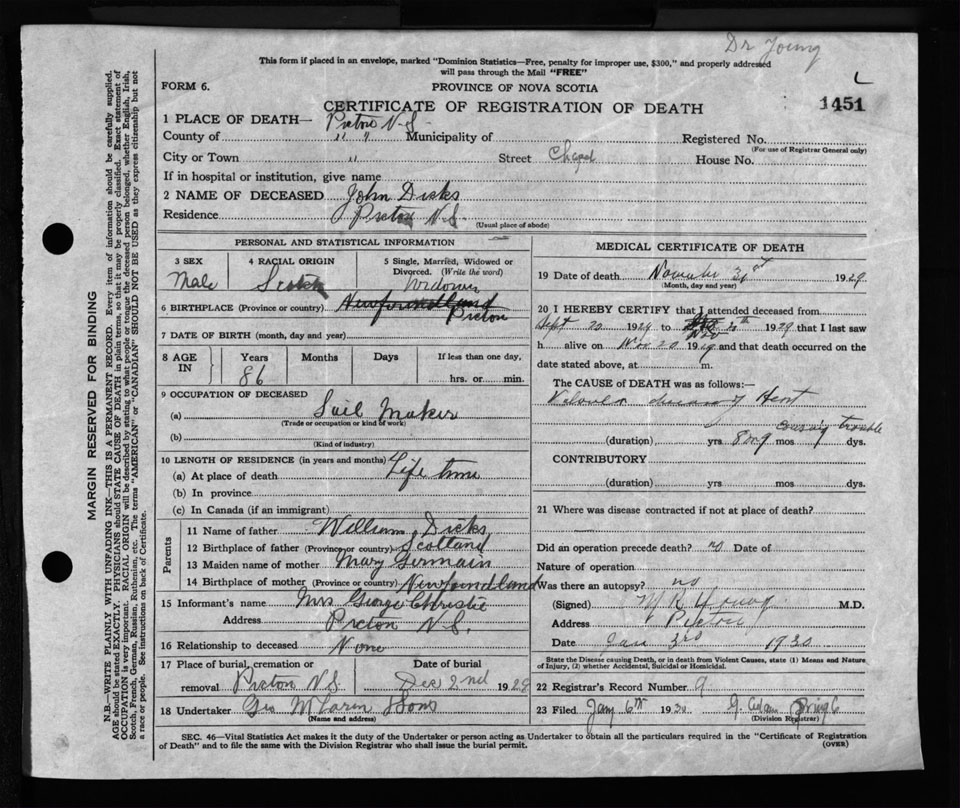 Dr Young
This form if placed in an envelope, marked "Dominion Statistics—Free, penalty for improper use, $300," and properly addressed
will pass through the Mail "FREE"
FORM 6.
PROVINCE OF NOVA SCOTIA
L
1451
CERTIFICATE OF REGISTRATION OF DEATH
1 PLACE OF DEATH— Pictou N.S.
County of " " Municipality of Registered No.
(For use of Registrar General only)
City or Town " Street Chapel House No.
If in hospital or institution, give name
2 NAME OF DECEASED John Dicks
Residence Pictou N.S.
(Usual place of abode)
MARGIN RESERVED FOR BINDING
N.B.—WRITE PLAINLY WITH UNFADING INK—THIS IS A PERMANENT RECORD. Every item of information should be carefully supplied.
AGE should be stated EXACTLY. PHYSICIANS should STATE CAUSE OF DEATH in plain terms, so that it may be properly classified. Exact statement of
OCCUPATION is very important. RACIAL ORIGIN will be described by stating to what people or tongue the deceased person belonged, whether English, Irish,
Scotch, French, German, Russian, Ruthenian, etc. The terms "AMERICAN" or "CANADIAN" SHOULD NOT BE USED as they express citizenship but not
a race or people. See instructions on back of Certificate.
PERSONAL AND STATISTICAL INFORMATION
3 SEX
Male
4 RACIAL ORIGIN
Scotch
5 Single, Married, Widowed or
Divorced. (Write the word)
Widower
6 BIRTHPLACE (Province or country) Newfoundland
Pictou
7 DATE OF BIRTH (month, day and year)
8 AGE IN
Years
86
Months
Days
If less than one day,
hrs. or min.
9 OCCUPATION OF DECEASED
(a) Sail Maker
(Trade or occupation or kind of work)
(b)
(Kind of industry)
10 LENGTH OF RESIDENCE (in years and months)
(a) At place of death Life time
(b) In province
(c) In Canada (if an immigrant)
Parents
11 Name of father William Dicks
12 Birthplace of father (Province or country) Scotland
13 Maiden name of mother Mary Germain
14 Birthplace of mother (Province or country) Newfoundland
15 Informant's name Mrs George Christie
Address Pictou N.S.
16 Relationship to deceased None
17 Place of burial, cremation or
removal Pictou N.S.
Date of burial
Dec 2nd 1929
18 Undertaker Geo McLaren Sons
(Name and address)
MEDICAL CERTIFICATE OF DEATH
19 Date of death 1929
(Month, day and year)
20 I HEREBY CERTIFY that I attended deceased from
Sept 20 1929 to Nov 20th 1929 that I last saw
h alive on Nov 20 1929 and that death occurred on the
date stated above, at m.
The CAUSE OF DEATH was as follows:—
Heart
trouble
(duration) yrs mos dys.
CONTRIBUTORY
(duration) yrs mos dys.
21 Where was disease contracted if not at place of death?
Did an operation precede death? no Date of
Nature of operation
Was there an autopsy? no
(Signed) Young M.D.
Address Pictou
Date Jan 3rd 1930
State the Disease causing Death, or in death from Violent Causes, state (1) Means and Nature
of Injury, (2) whether Accidental, Suicidal or Homicidal.
22 Registrar's Record Number 9
23 Filed Jany 6th 1930
(Division Registrar)
SEC. 46—Vital Statistics Act makes it the duty of the Undertaker or person acting as Undertaker to obtain all the particulars required in the "Certificate of Registration
of Death" and to file the same with the Division Registrar who shall issue the burial permit.
(OVER)